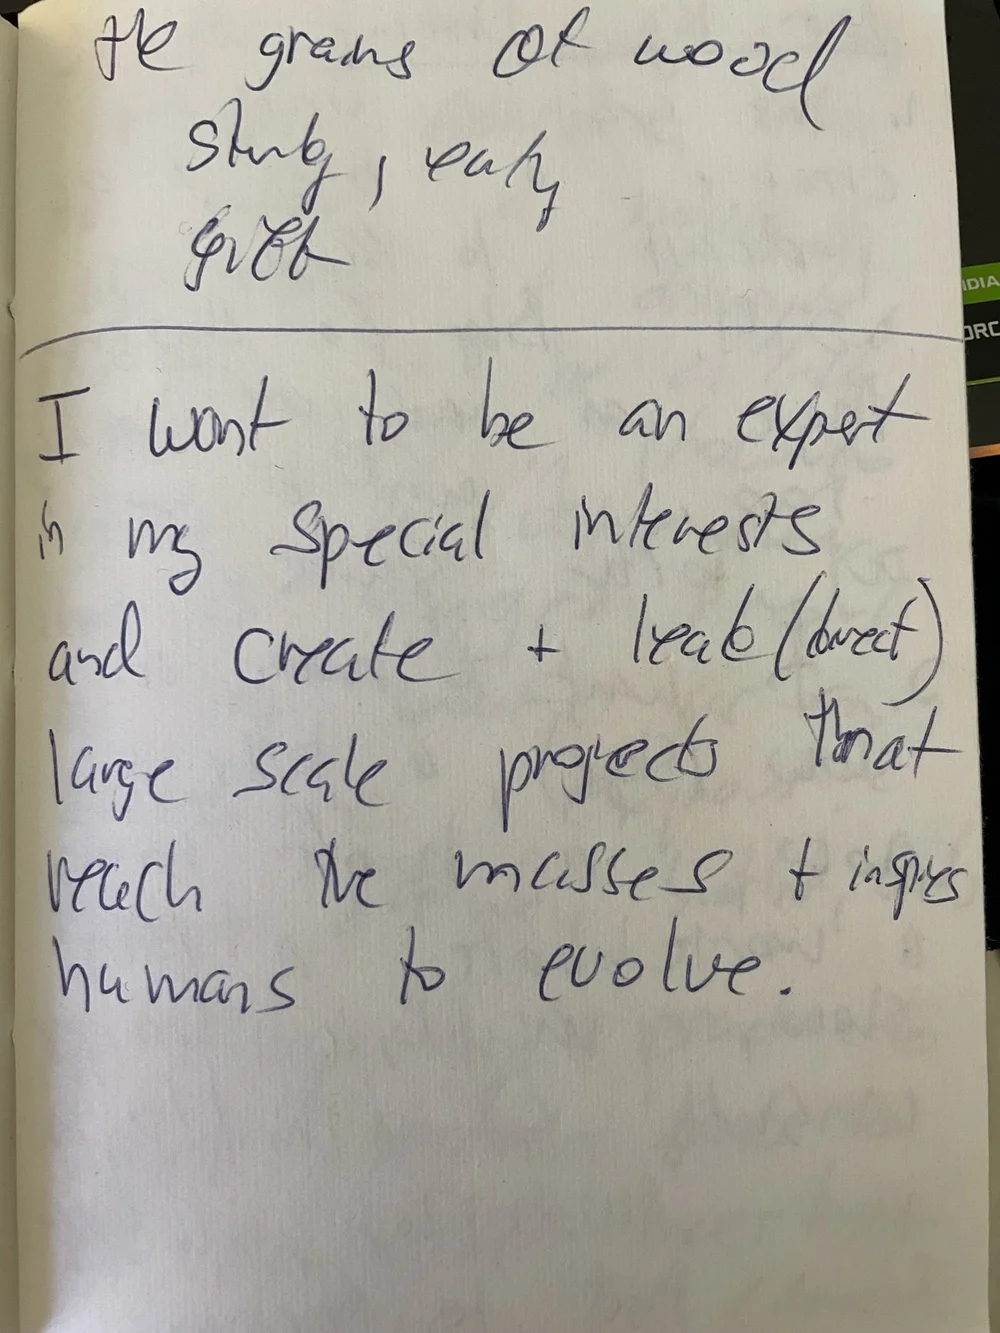 the grains of wood
sturdy, earthy
I want to be an expert
in my special interests
and create + lead (direct)
large scale projects that
reach the masses + inspires
humans to evolve.
IDIA
ORC